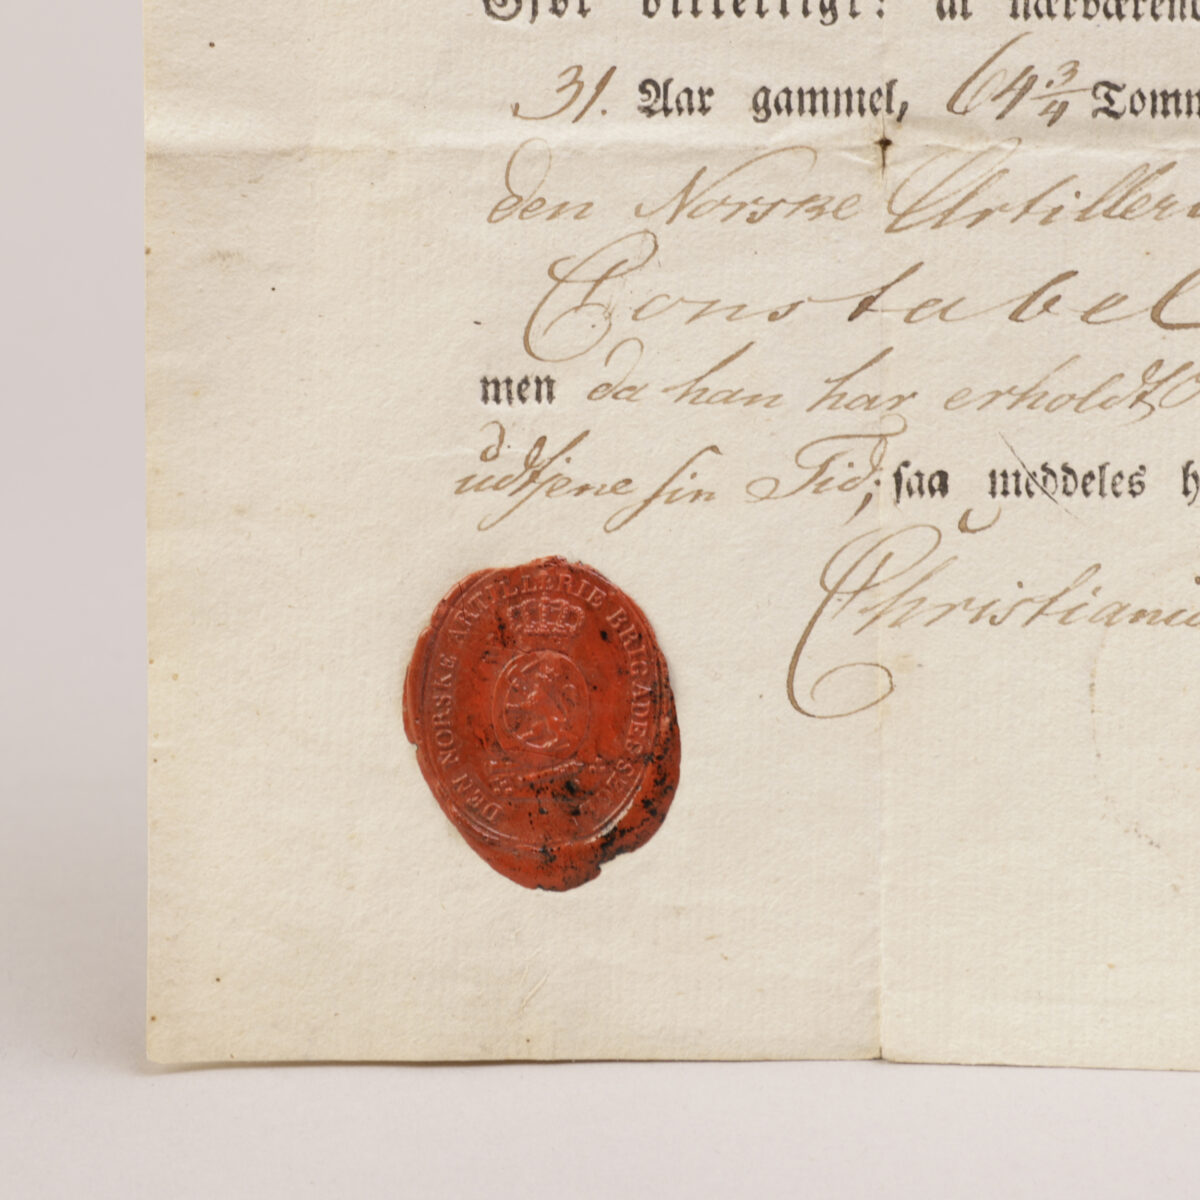 31. Aar gammel, 64 3/4 Tomm
den Norske Artilleri
Constabel
men da han har erholdt
udtjene sin Tid; saa meddeles h
Christiania
DEN NORSKE ARTILLERIE BRIGADES